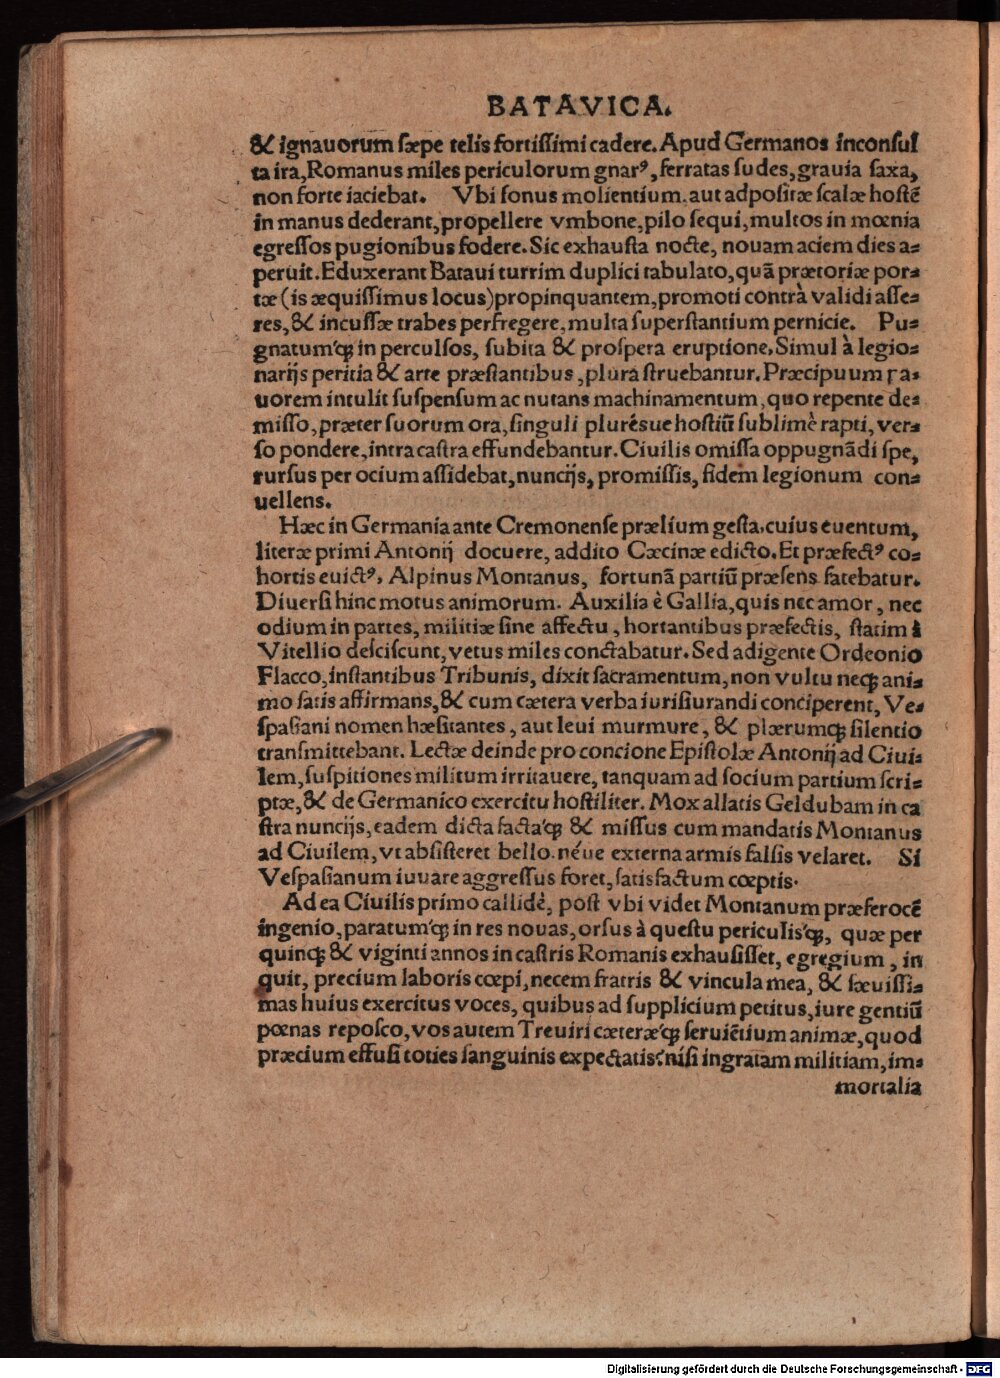 BATAVICA.
& ignauorum sæpe telis fortissimi cadere. Apud Germanos inconsul
ta ira, Romanus miles periculorum gnarꝰ, ferratas sudes, grauia saxa,
non forte iaciebat. Vbi sonus molientium, aut adpositæ scalæ hostē
in manus dederant, propellere vmbone, pilo sequi, multos in mœnia
egressos pugionibus fodere. Sic exhausta nocte, nouam aciem dies a-
peruit. Eduxerant Bataui turrim duplici tabulato, quā prætoriæ por-
tæ (is æquissimus locus) propinquantem, promoti contrà validi asse-
res, & incussæ trabes perfregere, multa superstantium pernicie. Pu-
gnatum'qꝫ in perculsos, subita & prospera eruptione. Simul à legio-
narijs peritia & arte præstantibus, plura struebantur. Præcipuum pa-
uorem intulit suspensum ac nutans machinamentum, quo repente de-
misso, præter suorum ora, singuli plurésue hostiū sublimè rapti, ver-
so pondere, intra castra effundebantur. Ciuilis omissa oppugnādi spe,
rursus per ocium assidebat, nuncijs, promissis, fidem legionum con-
uellens.
Hæc in Germania ante Cremonense prælium gesta. cuius euentum,
literæ primi Antonij docuere, addito Cæcinæ edicto. Et præfectꝰ co-
hortis euictꝰ, Alpinus Montanus, fortunā partiū præsens fatebatur.
Diuersi hinc motus animorum. Auxilia è Gallia, quis nec amor, nec
odium in partes, militiæ sine affectu, hortantibus præfectis, statim à
Vitellio desciscunt, vetus miles conctabatur. Sed adigente Ordeonio
Flacco, instantibus Tribunis, dixit sacramentum, non vultu neqꝫ ani-
mo satis affirmans, & cum cætera verba iurisiurandi conciperent, Ve-
spasiani nomen hæsitantes, aut leui murmure, & plærumqꝫ silentio
transmittebant. Lectæ deinde pro concione Epistolæ Antonij ad Ciui-
lem, suspitiones militum irritauere, tanquam ad socium partium scri-
ptæ, & de Germanico exercitu hostiliter. Mox allatis Geldubam in ca
stra nuncijs, eadem dicta facta'qꝫ & missus cum mandatis Montanus
ad Ciuilem, vt absisteret bello. néue externa armis falsis velaret. Si
Vespasianum iuuare aggressus foret, satisfactum cœptis.
Ad ea Ciuilis primo callidè, post vbi videt Montanum præferocē
ingenio, paratum'qꝫ in res nouas, orsus à questu periculis'qꝫ, quæ per
quinqꝫ & viginti annos in castris Romanis exhausisset, egregium, in
quit, precium laboris cœpi, necem fratris & vincula mea, & sæuissi-
mas huius exercitus voces, quibus ad supplicium petitus, iure gentiū
pœnas reposco, vos autem Treuiri cæteræ'qꝫ seruiētium animæ, quod
præcium effusi toties sanguinis expectatis? nisi ingratam militiam, im-
mortalia
Digitalisierung gefördert durch die Deutsche Forschungsgemeinschaft - DFG